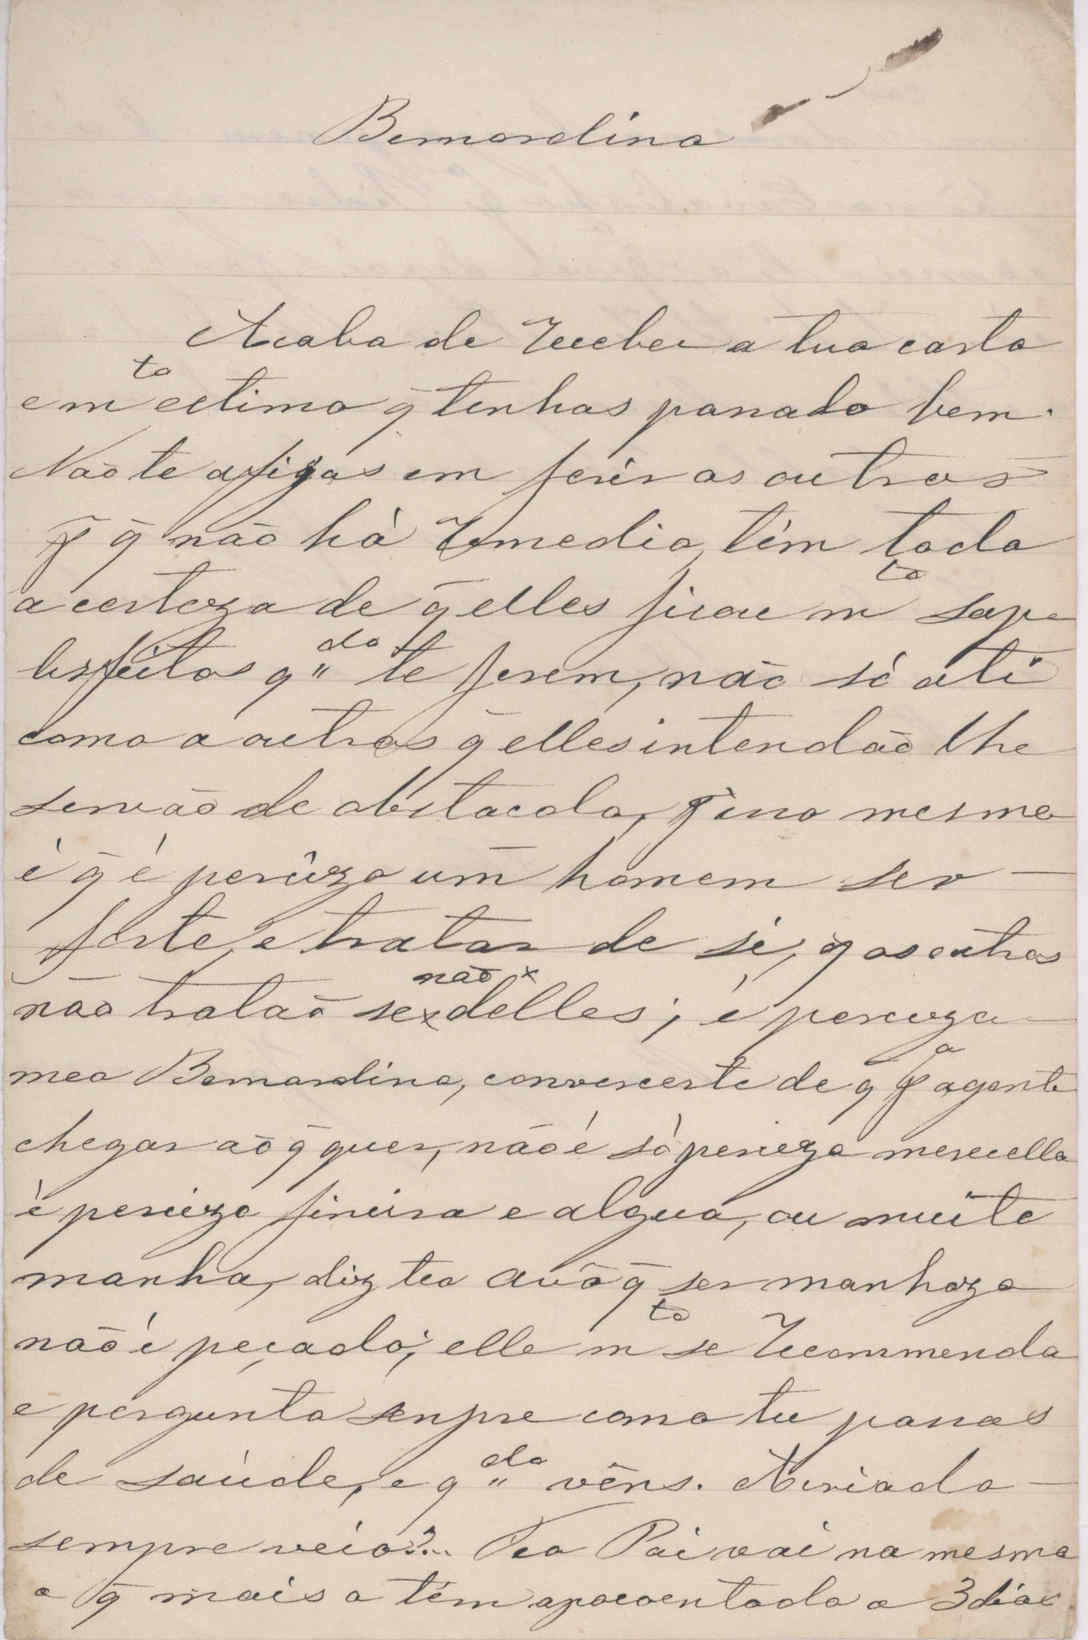 Bernardino
Acabo de receber a tua carta
e m.to estimo q̃ tenhas passado bem.
Não te afijas em ferir as outros
p̃ q̃ não há remedio, têm toda
a certeza de q̃ elles ficão m.to
tisfeitos q.do te ferem, não só a ti
como a outros q̃ elles intendão lhe
servão de obstacolo, p̃ isso mesmo
é q̃ é percizo um homem ser
forte, e tratar de si, q os outros
não tratão se não delles; é percizo
meo Bernardino, convencerte de q p.a agente
chegar aõ q̃ quer, não é só percizo merecello
é percizo finura e algua, ou muita
manha, diz teo avô q̃ ser manhozo
não é peçado; elle m.to se recommenda
e pergunta senpre como tu passas
de saúde, e q.do vêns. A criada
sempre veio?... Teo Pai vai na mesma
o q̃ mais o têm apoquentado a 3 dias